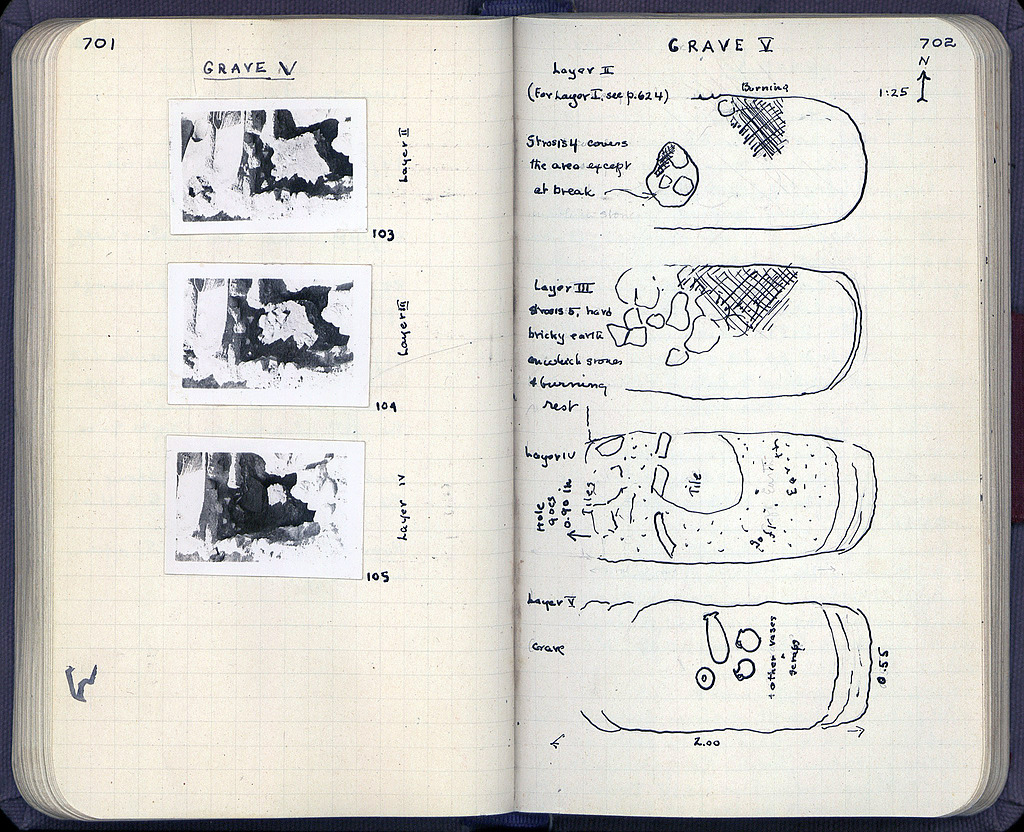 701
GRAVE V
Layer II
103
Layer III
104
Layer IV
105
GRAVE V
702
N
1:25
Layer II
(For Layer I, see p. 624)
Burning
Strosis 4 covers
the area except
at break
Layer III
Strosis 5, hard
bricky earth
on which stones
& burning
rest
Layer IV
Hole
goes
0.90 in
Tiles
Tile
Earth
Layer V
Grave
+ other vases
scraps
0.55
2.00